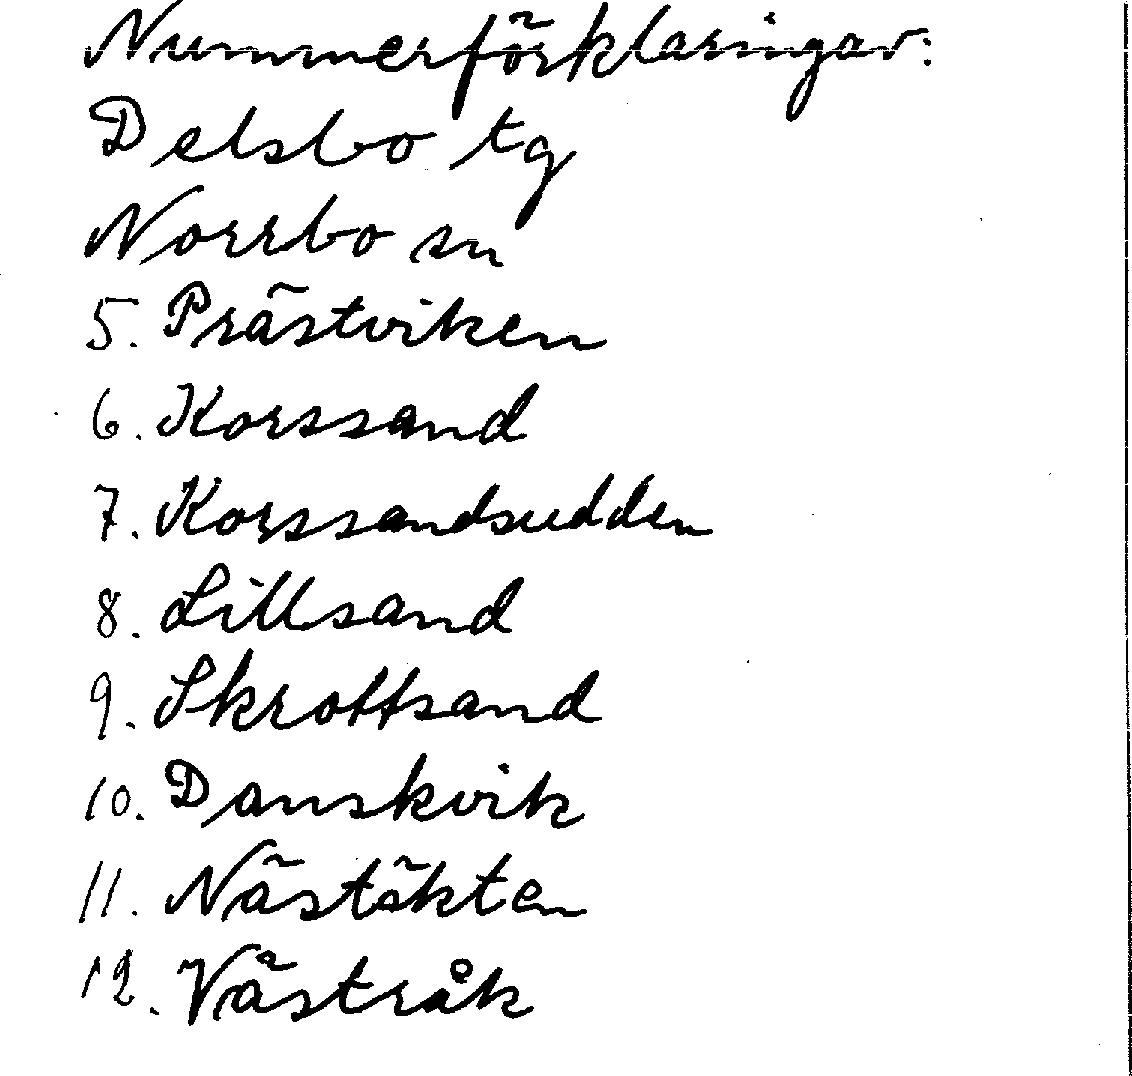 Nummerförklaringar:
Delsbo tg
Norrbo sn
5. Prästviken
6. Korssand
7. Korssandsudden
8. Lillsand
9. Skrottsand
10. Danskvik
11. Nästäkten
12. Västråk